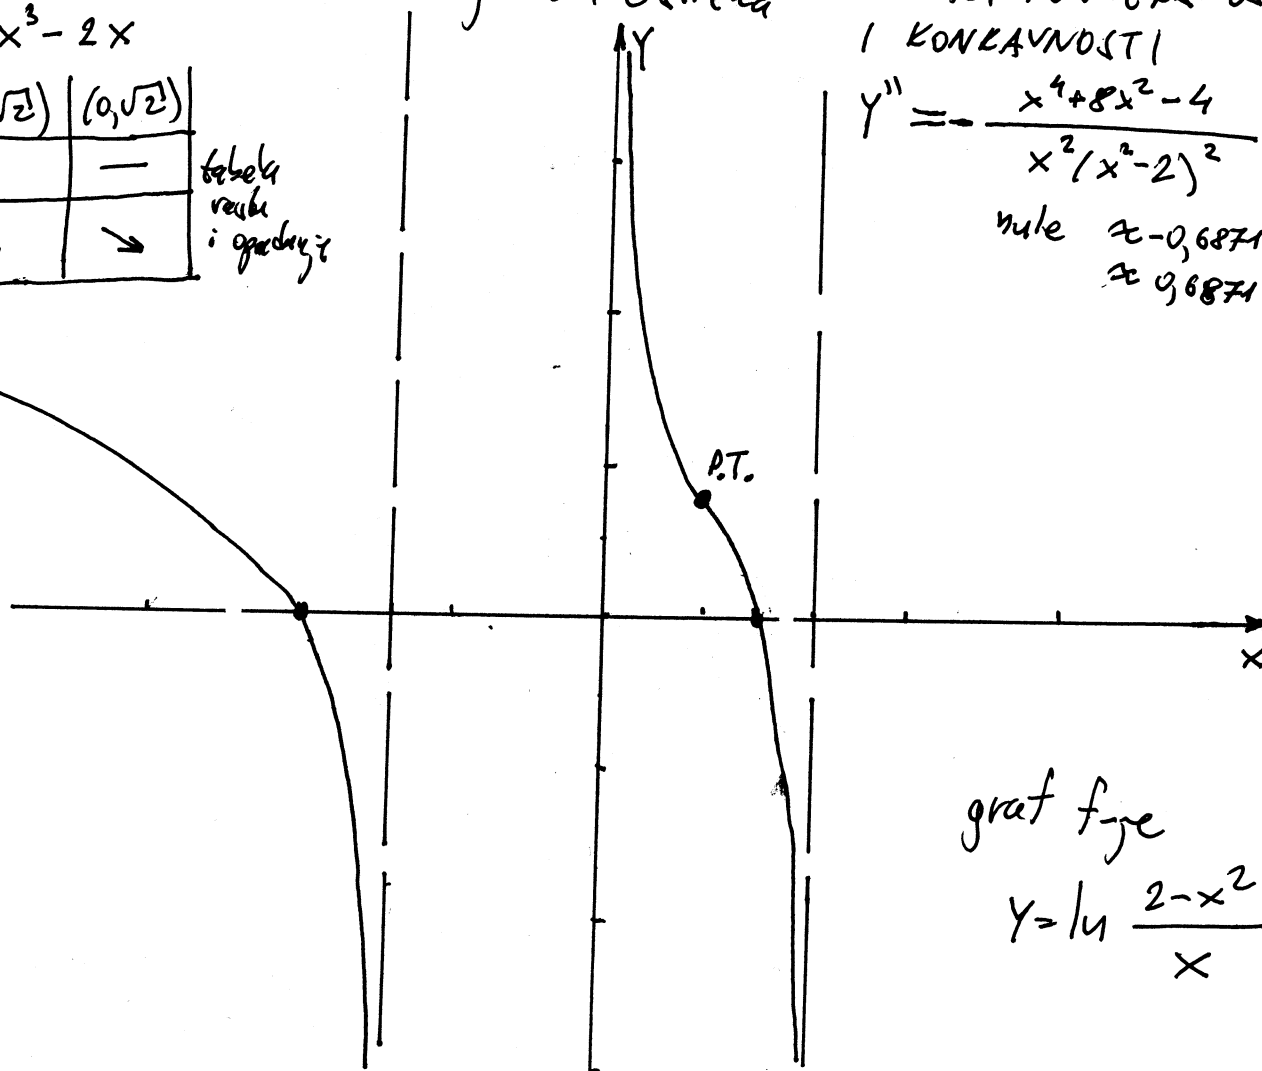 x³ - 2x
√2) (0, √2)
—
tabela
rasta
i opadanja
Y
I KONKAVNOSTI
Y'' = - x⁴+8x²-4 / x²(x²-2)²
nule ≈ -0,6871
≈ 0,6871
P.T.
x
graf f-je
Y = ln 2-x² / x